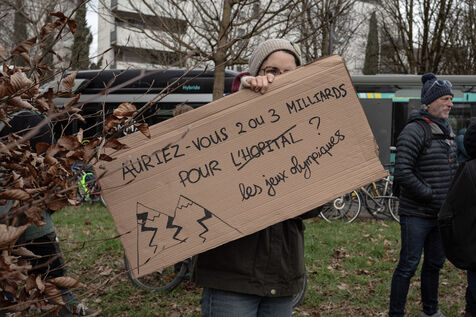 Hybride
AURIEZ-VOUS 2 OU 3 MILLIARDS
POUR L'HOPITAL ?
les jeux olympiques